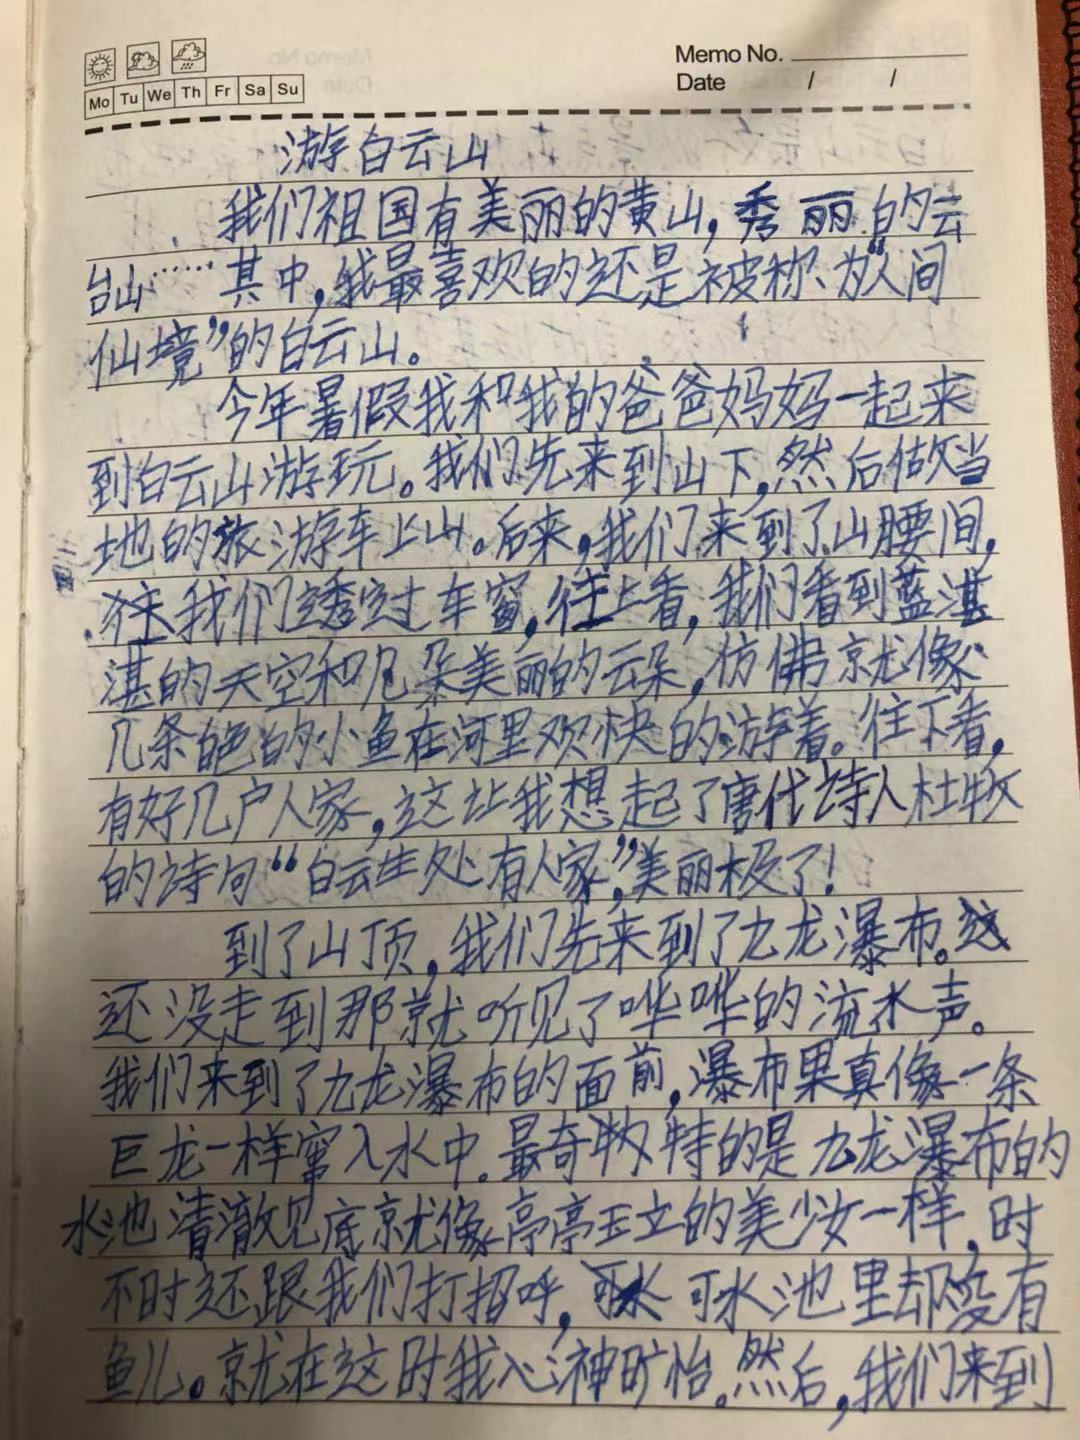 Memo No.
Mo Tu We Th Fr Sa Su
Date / /
游白云山
我们祖国有美丽的黄山，秀丽的云
台山……其中，我最喜欢的还是被称为“人间
仙境”的白云山。
今年暑假我和我的爸爸妈妈一起来
到白云山游玩。我们先来到山下，然后做当
地的旅游车上山。后来，我们来到了山腰间，
我们透过车窗，往上看，我们看到蓝湛
湛的天空和几朵美丽的云朵，仿佛就像
几条白色的小鱼在河里欢快的游着。往下看，
有好几户人家，这让我想起了唐代诗人杜牧
的诗句“白云生处有人家，”美丽极了！
到了山顶，我们先来到了九龙瀑布。
还没走到那就听见了哗哗的流水声。
我们来到了九龙瀑布的面前，瀑布果真像一条
巨龙一样窜入水中。最奇特的是九龙瀑布的
水池清澈见底就像亭亭玉立的美少女一样，时
不时还跟我们打招呼，可水池里却没有
鱼儿。就在这时我心神旷怡。然后，我们来到